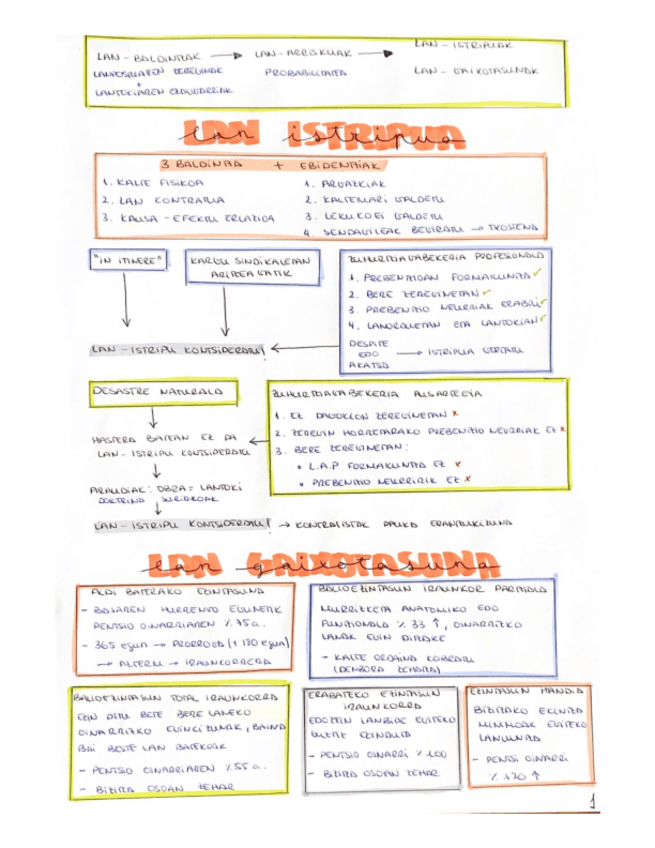 LAN - BALDINTZAK → LAN - ARRISKUAK → LAN - ISTRIPUAK
LANPOSTUAREN ZEREGINAK PROBABILITATEA LAN - GAIXOTASUNAK
+
LANTOKIAREN EZAUGARRIAK
LAN ISTRIPUA
3 BALDINTZA + EBIDENTZIAK
1. KALTE FISIKOA
2. LAN KONTRATUA
3. KAUSA - EFEKTU ERLAZIOA
1. ARGAZKIAK
2. KALTETUARI GALDETU
3. LEKUKOEI GALDETU
4. SENDAGILEAK BEGIRATU →
"IN ITINERE"
KARGU SINDIKALETAN
ARITZEAGATIK
ZUHURTZIAGABEKERIA PROFESIONALA
1. PREBENTZIOAN FORMAKUNTZA ✓
2. BERE ZEREGINETAN ✓
3. PREBENTZIO NEURRIAK ERABILI ✓
4. LANORDUETAN ETA LANTOKIAN ✓
DESPITE
EDO → ISTRIPUA GERTATU
AKATSA
LAN - ISTRIPU KONTSIDERATU!
DESASTRE NATURALA
HASIERA BATEAN EZ DA
LAN - ISTRIPU KONTSIDERATU
ARAUDIAK: OBRA = LANTOKI
DOKTRINA JURIDIKOAK
LAN - ISTRIPU KONTSIDERATU! → KONTRATISTAK ERANTZUKIZUNA
ZUHURTZIAGABEKERIA AUSARTEGIA
1. EZ DAGOKION ZEREGINETAN x
2. ZEREGIN HORRETARAKO PREBENTZIO NEURRIAK EZ x
3. BERE ZEREGINETAN:
• L.A.P FORMAKUNTZA EZ x
• PREBENTZIO NEURRIRIK EZ x
LAN GAIXOTASUNA
ALDI BATERAKO EZINTASUNA
- BAJAREN HURRENGO EGUNETIK
PENTSIO OINARRIAREN %75a.
- 365 egun → PRORROGA (+ 180 egun)
→ ALTERN → IRAUNKORRERA
BALIOEZINTASUN IRAUNKOR PARTZIALA
MURRIZKETA ANATOMIKO EDO
FUNTZIONALA %33 ↑, OINARRIZKO
LANAK EGIN DITZAKE
- KALTE ORDAINA KOBRATU
(DENBORA ZEHATZA)
BALIOEZINTASUN TOTAL IRAUNKORRA
EZIN DITU BETE BERE LANEKO
OINARRIZKO EGINKIZUNAK, BAINA
BAI BESTE LAN BATEKOAK
- PENTSIO OINARRIAREN %55a.
- BIZITZA OSOAN ZEHAR
ERABATEKO EZINTASUN
IRAUNKORRA
EDOZEIN LANBIDE EGITEKO
EZINDUTA
- PENTSIO OINARRI %100
- BIZITZA OSOAN ZEHAR
EZINTASUN HANDIA
BIZITZAKO EKINTZA
MINIMOAK EGITEKO
LAGUNTZA
- PENTSIO OINARRI
%120 ↑
1